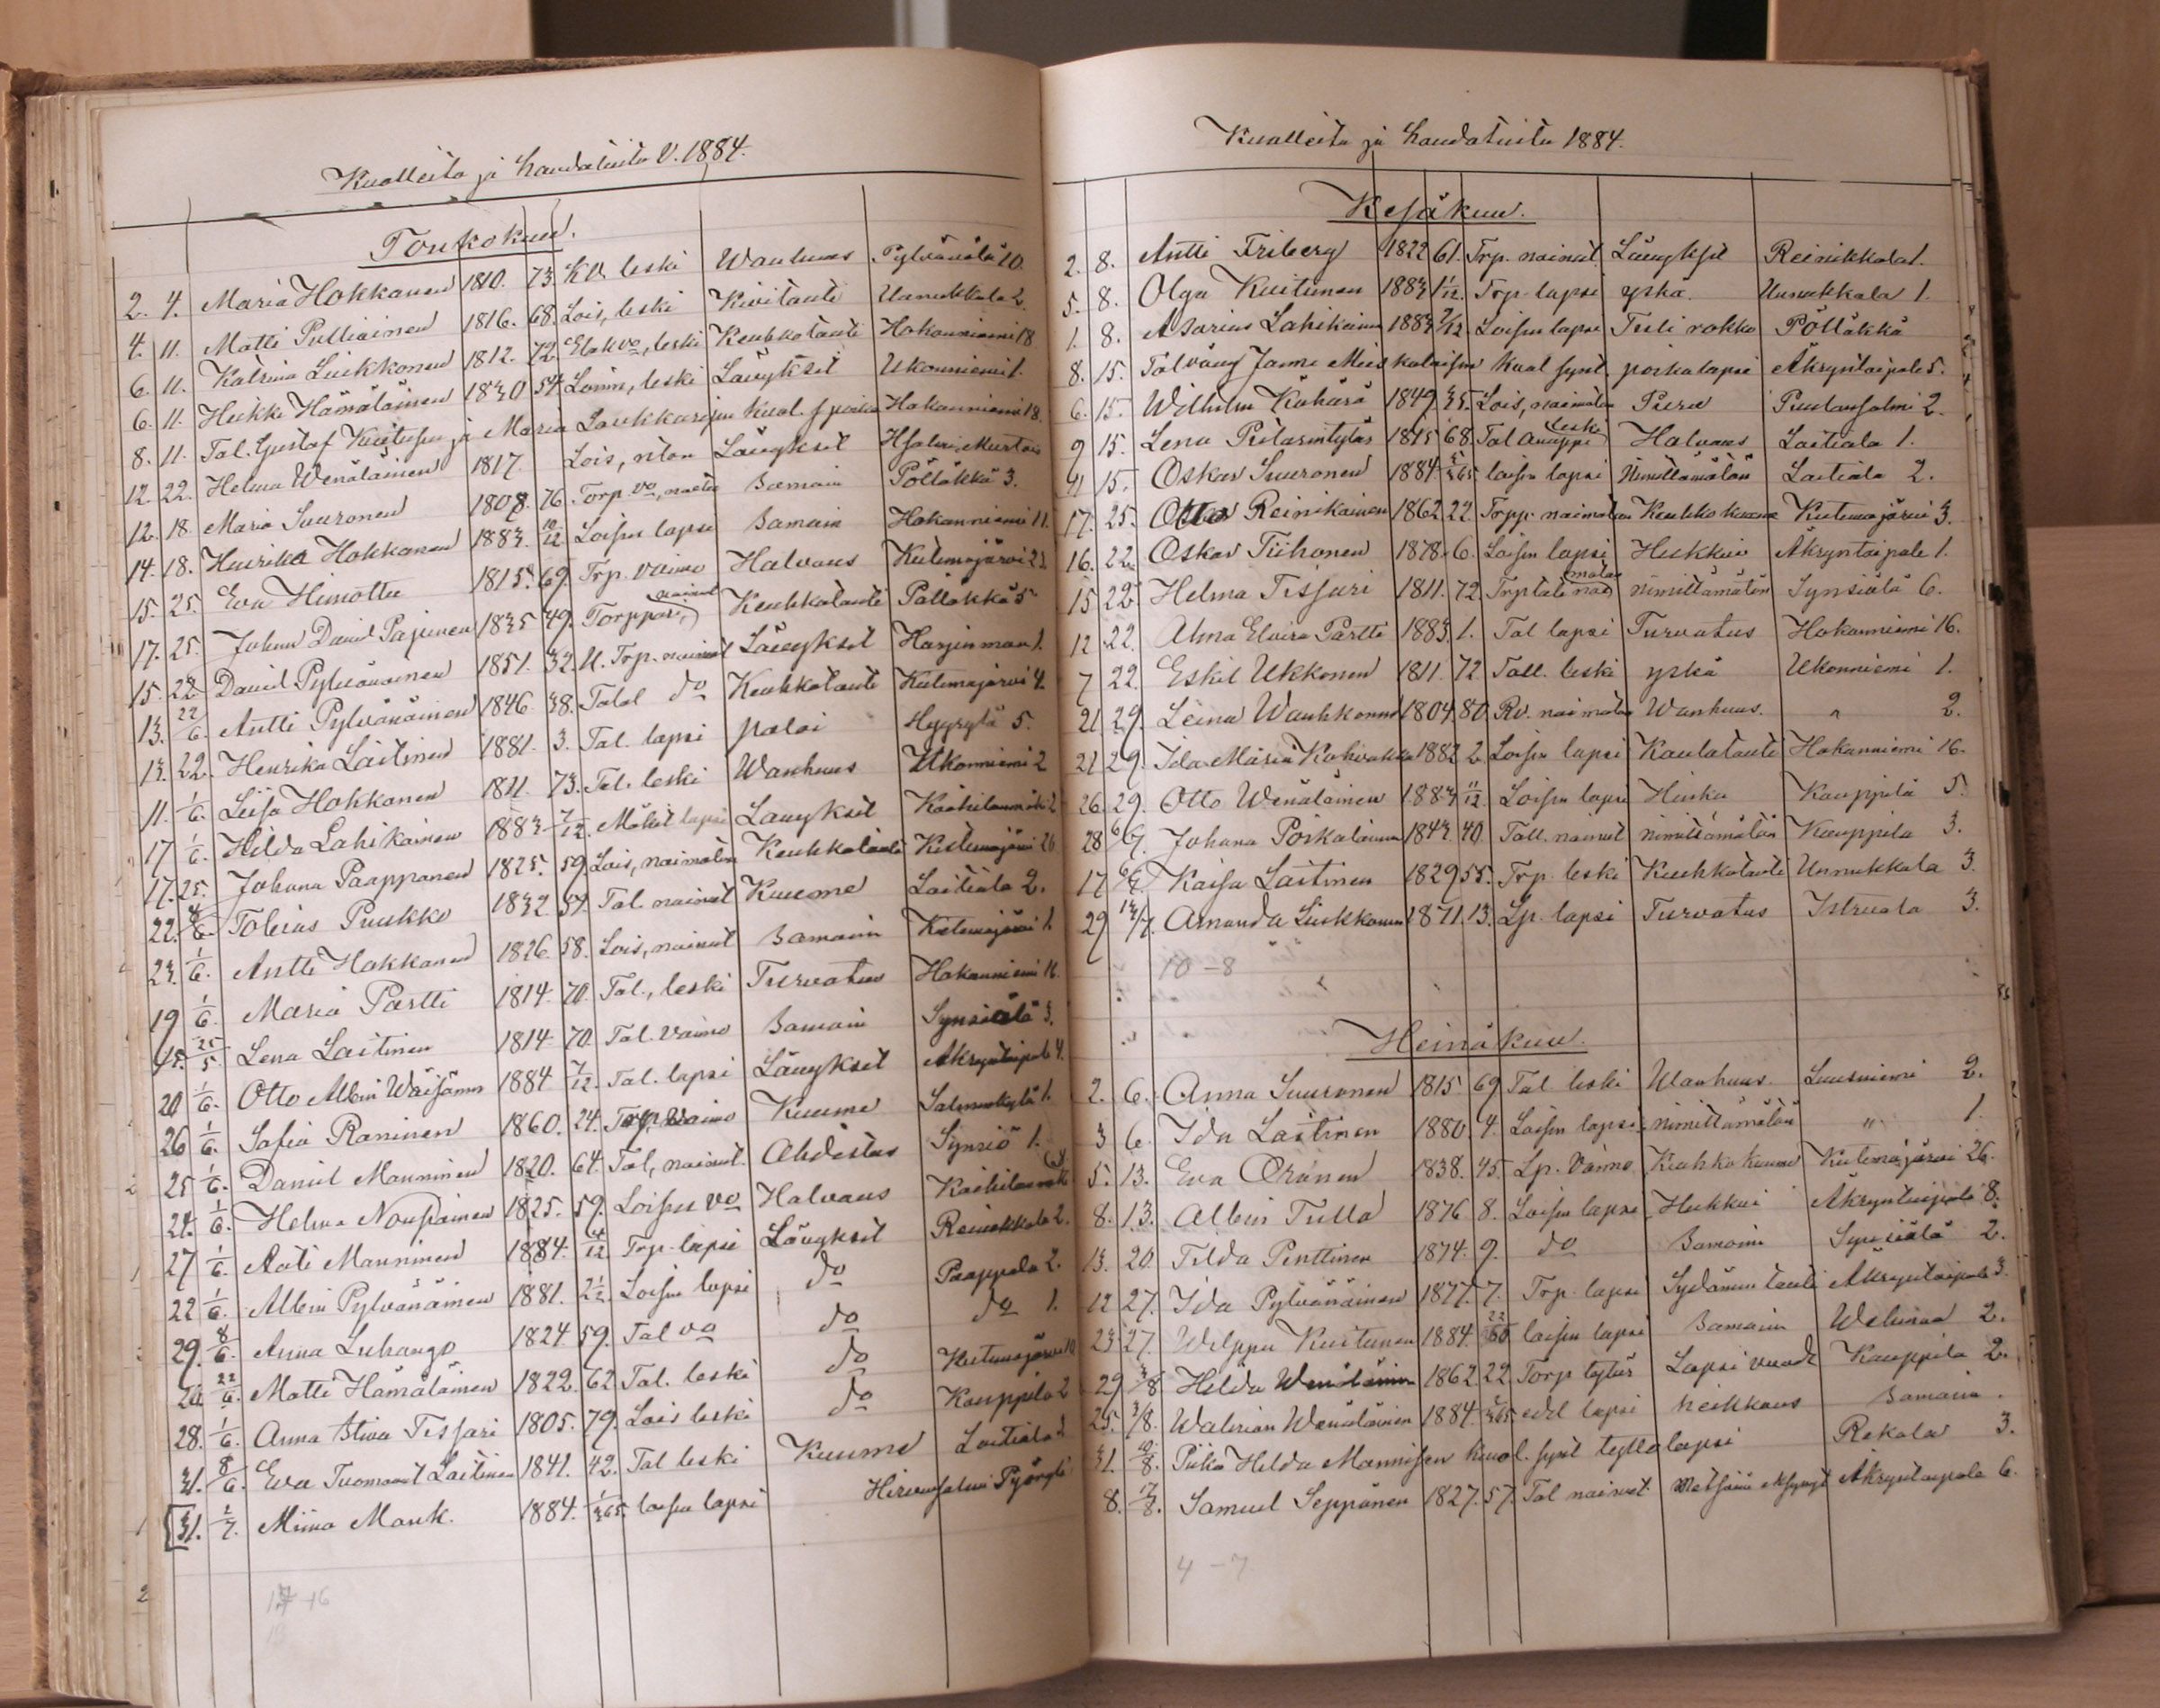 Kuolleita ja haudatuita V. 1884.
Toukokuu.
2. 4. Maria Hokkanen 1810. 73. leski Wanhuus Pylvänälä 10.
4. 11. Matti Pulliainen 1816. 68. Lois, leski Kivitauti Unnukkala 2.
6. 11. Katrina Liukkonen 1812. 72. leski Keuhkotauti Hokanniemi 18
6. 11. Heikki Hämäläinen 1830 54 leski Läuykset Ukonniemi 1.
8. 11. Tal. Gustaf Kuitusen ja Maria Laukkarisen kuol. s. poika Hokanniemi 18.
12. 22. Helena Wenäläinen 1817. Lois, Läuykset
12. 18. Maria Suuronen 1808. 76. Torp. vo, Samain Pölläkkä 3.
14. 18. Henrika Hokkanen 1883. 10/12 Loisen lapsi Samain Hokanniemi 11.
15. 25. Eva Himottu 1815. 69. Trp. vaimo Halvaus Kutemajärvi 23
17. 25. Johan David Pajunen 1835 49. Torppari, nainut Keuhkotauti Pölläkkä 5
15. 22. David Pylvänäinen 1851. 32. Trp. nainut Läuykset Harjunmaa 1.
13. 22/6. Antti Pylvänäinen 1846. 38. Talol do Keuhkotauti Kutemajärvi 4.
13. 22. Henrika Laitinen 1881. 3. Tal. lapsi paloi Hyyrylä 5.
11. 1/6. Liisa Hokkanen 1811. 73. Tal. leski Wanhuus Ukonniemi 2
17 1/6. Hilda Lahikainen 1883 7/12. Mökit lapsi Läuykset
17. 25. Johana Paappanen 1825. 59. Lois, naimaton Keuhkotauti Kutemajärvi 26
22. 8/6 Tobias Puukko 1832 51. Tal. nainut Kuume Laitiala 2.
23. 1/6. Antti Hokkanen 1826. 58. Lois, nainut Samain Kutemajärvi 1.
19 1/6. Maria Partti 1814. 70. Tal., leski Turvotus Hokanniemi 16.
15. 25/5. Lena Laitinen 1814. 70. Tal. vaimo Samain Synsiälä 3.
20 1/6. Otto Albin Wäisänen 1884 7/12. Tal. lapsi Läuykset Akryntaipale 4.
26 1/6. Sofia Raninen 1860. 24. Trp. vaimo Kuume Salmenkylä 1.
25 1/6. Daniel Manninen 1820. 64. Tal, nainut. Ahdistus Synsiö 1.
24. 1/6. Helena Nousiainen 1825. 59. Loisen vo Halvaus
27 1/6. Aati Manninen 1884. Trp. lapsi Läuykset Reinikkala 2.
22 1/6. Albin Pylvänäinen 1881. 2 1/2. Loisen lapsi do Paappala 2.
29. 8/6. Anna Luhango 1824. 59. Tal vo do do 1.
20 22/6. Matti Hämäläinen 1822. 62. Tal. leski do Kutemajärvi
28. 1/6. Anna Stiva Tissari 1805. 79. Lois leski do Kauppila 2
31. 8/6. Eva Tuomaant Laitinen 1841. 42. Tal leski Kuume Laitiala
31. 1/7. Miina Mank. 1884. 1/365. loisen lapsi Hirvensalmi
Kuolleita ja haudatuita 1884.
Kesäkuu.
2. 8. Antti Friberg 1822 61. Trp. nainut Läuykset Reinikkala 1.
5. 8. Olga Kuitunen 1883 1 1/12. Trp lapsi yskä. Unnukkala 1.
1. 8. Asarias Lahikainen 1883 7/12 Loisen lapsi Tuli rokko Pölläkkä
8. 15. Tal väug Janne Mieskolaisen kuol. synt. poikalapsi Akryntaipale 5.
6. 15. Wilhelm Kähärä 1849 35. Lois, naimaton Puulansalmi 2.
9 15. Lena Pulasintytär 1815 68. Tal leski Halvaus Laitiala 1.
4 15. Oskar Suuronen 1884. 5/365 loisen lapsi Nimittämätön Laitiala 2.
17. 25. Otto Reinikainen 1862 22. Trpp. naimaton Keuhko kuume Kutemajärvi 3.
16. 22. Oskar Tiihonen 1878. 6. Loisen lapsi Heikkus Akryntaipale 1.
15 22. Helena Tissari 1811. 72. nimittämätön Synsiälä 6.
12 22. Alma Elvira Partti 1883. 1. Tal lapsi Turvotus Hokanniemi 16.
7 22. Eskil Ukkonen 1811. 72. Tall. leski yskä Ukonniemi 1.
21 29. Leena Wauhkonen 1804. 80. Rv. naimaton Wanhuus. " 2.
21 29. Ida Maria Kohvakka 1882 2. Loisen lapsi Kaulatauti Hokanniemi 16.
26. 29. Otto Wenäläinen 1883 11/12. Loisen lapsi Hinku Kauppila 5.
28 6/7. Johana Poikolainen 1843. 40. Tall. nainut nimittämätön Kauppila 3.
17 6/7. Kaisa Laitinen 1829 55. Trp. leski Keuhkotauti Unnukkala 3.
29 13/7. Amanda Liukkonen 1871. 13. Lp. lapsi Turvotus Istruala 3.
10 - 8
Heinäkuu.
2. 6. Anna Suuronen 1815. 69 Tal leski Wanhuus. Luusniemi 2.
3 6. Ida Laitinen 1880. 4. Loisen lapsi nimittämätön " 1.
5. 13. Eva Oranen 1838. 45. Lp. vaimo Keuhko kuume Kutemajärvi 26.
8. 13. Albin Tulla 1876. 8. Loisen lapsi Heikkus Akryntaipale 8.
13. 20. Tilda Penttinen 1874. 9. do Samain Synsiälä 2.
12 27. Ida Pylvänäinen 1877. 7. Trp. lapsi Sydämen tauti Akryntaipale 3.
23 27. Welppu Kuitunen 1884. loisen lapsi Samain Wehmaa 2.
29 3/8 Hilda Wenäläinen 1862 22 Torp tytär Lapsi vuode Kauppila 2.
25. 3/8. Walerian Wenäläinen 1884. lapsi heikkous Samain.
31. 10/8. Piika Hilda Mannisen kuol. synt tyttölapsi Rekola 3.
8. 17/8. Samuel Seppänen 1827. 57. Tal nainut. Metsään eksynyt Akryntaipale 6.
4 - 7